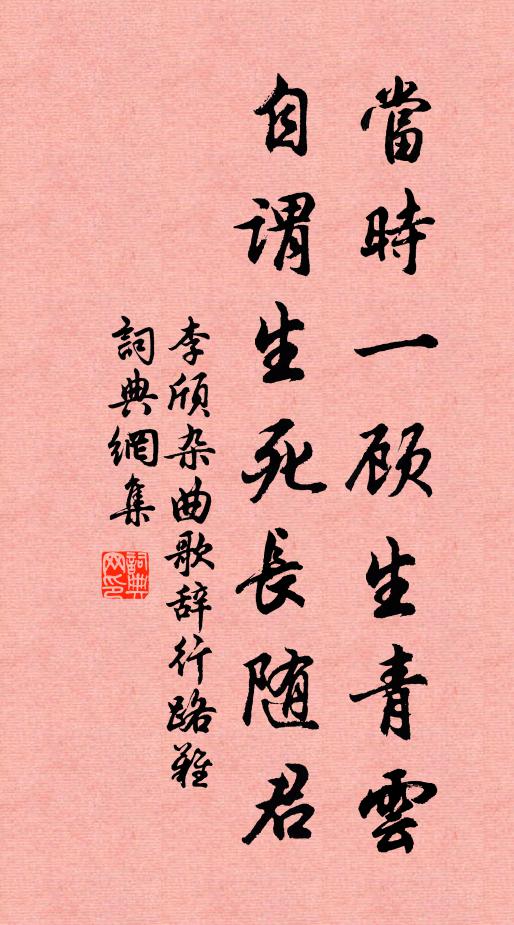 當時一顾生青雲
自謂生死長随君
李頎杂曲歌辞行路難
詞典網集
詞典
网印